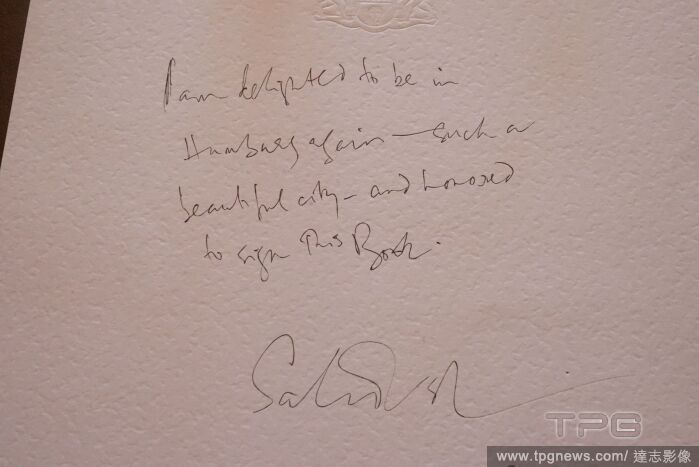 I am delighted to be in
Hamburg again – such a
beautiful city – and honored
to sign this Book.
TPG
www.tpgnews.com/ 達志影像